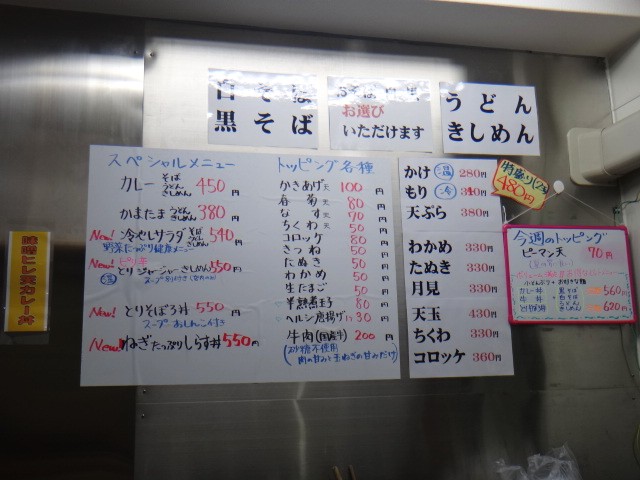 白そば
黒そば
お選び
いただけます
うどん
きしめん
スペシャルメニュー
カレー そば うどん きしめん 450円
かまたま うどん きしめん 380円
New! 冷やしサラダ そば うどん きしめん 540円
野菜たっぷり健康メニュー
New! ピリ辛
とりジャージャーきしめん 550円
New! とりそぼろ丼 550円
スープ おしんこ付き
New! ねぎたっぷりしらす丼 550円
トッピング各種
かきあげ天 100円
春菊天 80円
なす天 70円
ちくわ天 50円
コロッケ 80円
きつね 50円
たぬき 50円
わかめ 50円
生たまご 50円
半熟煮玉子 80円
ヘルシー唐揚げ 1ヶ 30円
牛肉(国産牛) 200円
肉の甘みと玉ねぎの甘みだけ)
かけ 温 280円
もり 冷 310円
天ぷら 380円
わかめ 330円
たぬき 330円
月見 330円
天玉 430円
ちくわ 330円
コロッケ 360円
特盛り
480円
今週のトッピング
ピーマン天 70円
カレー丼
560円
620円
味噌ヒレ天カレー丼